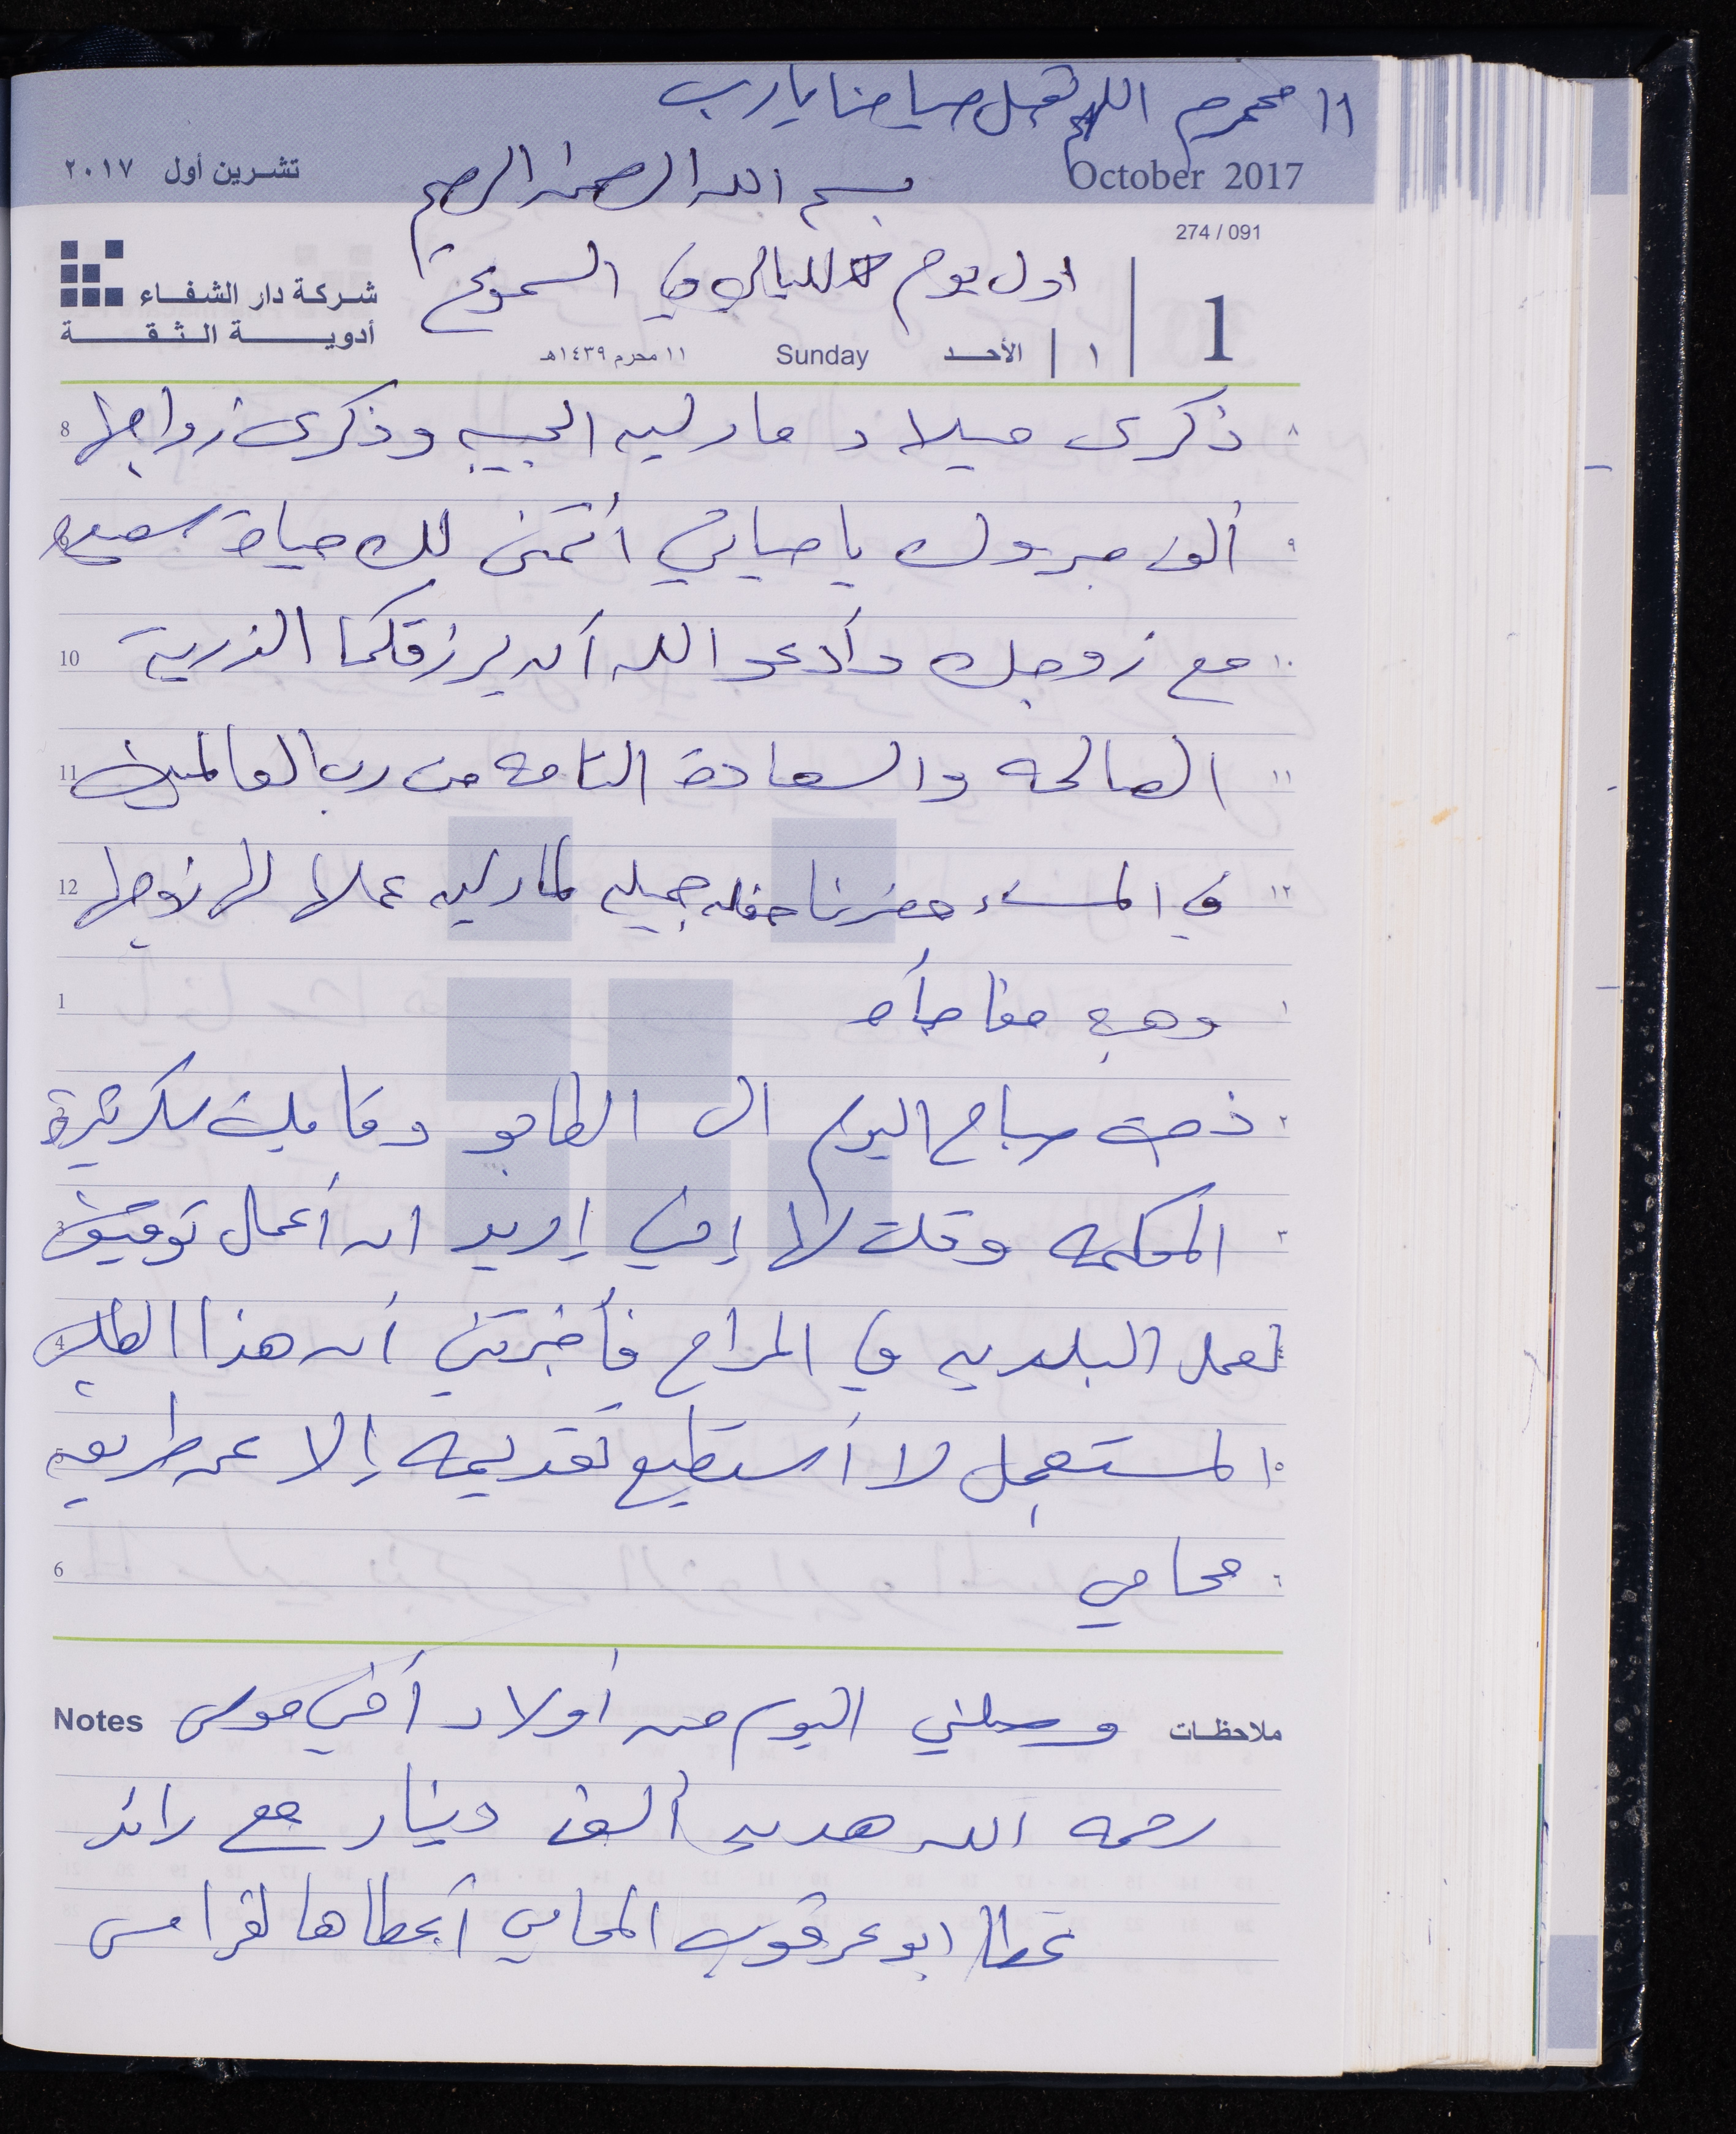 ١١ محرم اللهم تقبل صيامنا يارب
October 2017
تشرين أول ٢٠١٧
بسم الله الرحمن الرحيم
274 / 091
اول يوم لليالي في السموع
شركة دار الشفاء
أدوية الثقة
1
١ الأحد Sunday ١١ محرم ١٤٣٩هـ
٨ ذكرى ميلاد مارليه الحبيبه وذكرى زواجها 8
٩ ألف مبروك يا حياتي أتمنى لك حياة سعيده 9
١٠ مع زوجك وأدعو الله أن يرزقكما الذرية 10
١١ الصالحه والسعادة التامه من رب العالمين 11
١٢ في المساء حضرنا حفله جميله لمارليه عملها لها زوجها 12
١ وهي مفاجأه 1
٢ ذهبت صباح اليوم الى الطابو وقابلت سكرتيرة 2
٣ المحكمه وقلت لها إني إريد ان أعمل توقيف 3
٤ لعمل البلديه في المراح فأخبرتني أن هذا الطلب 4
٥ المستعجل لا أستطيع تقديمه إلا عن طريق 5
٦ محامي 6
ملاحظات وصلني اليوم من أولاد أخي موسى Notes
رحمه الله هديه ألف دينار مع رائد
عطا ابو عرقوب المحامي أعطاها لفراس